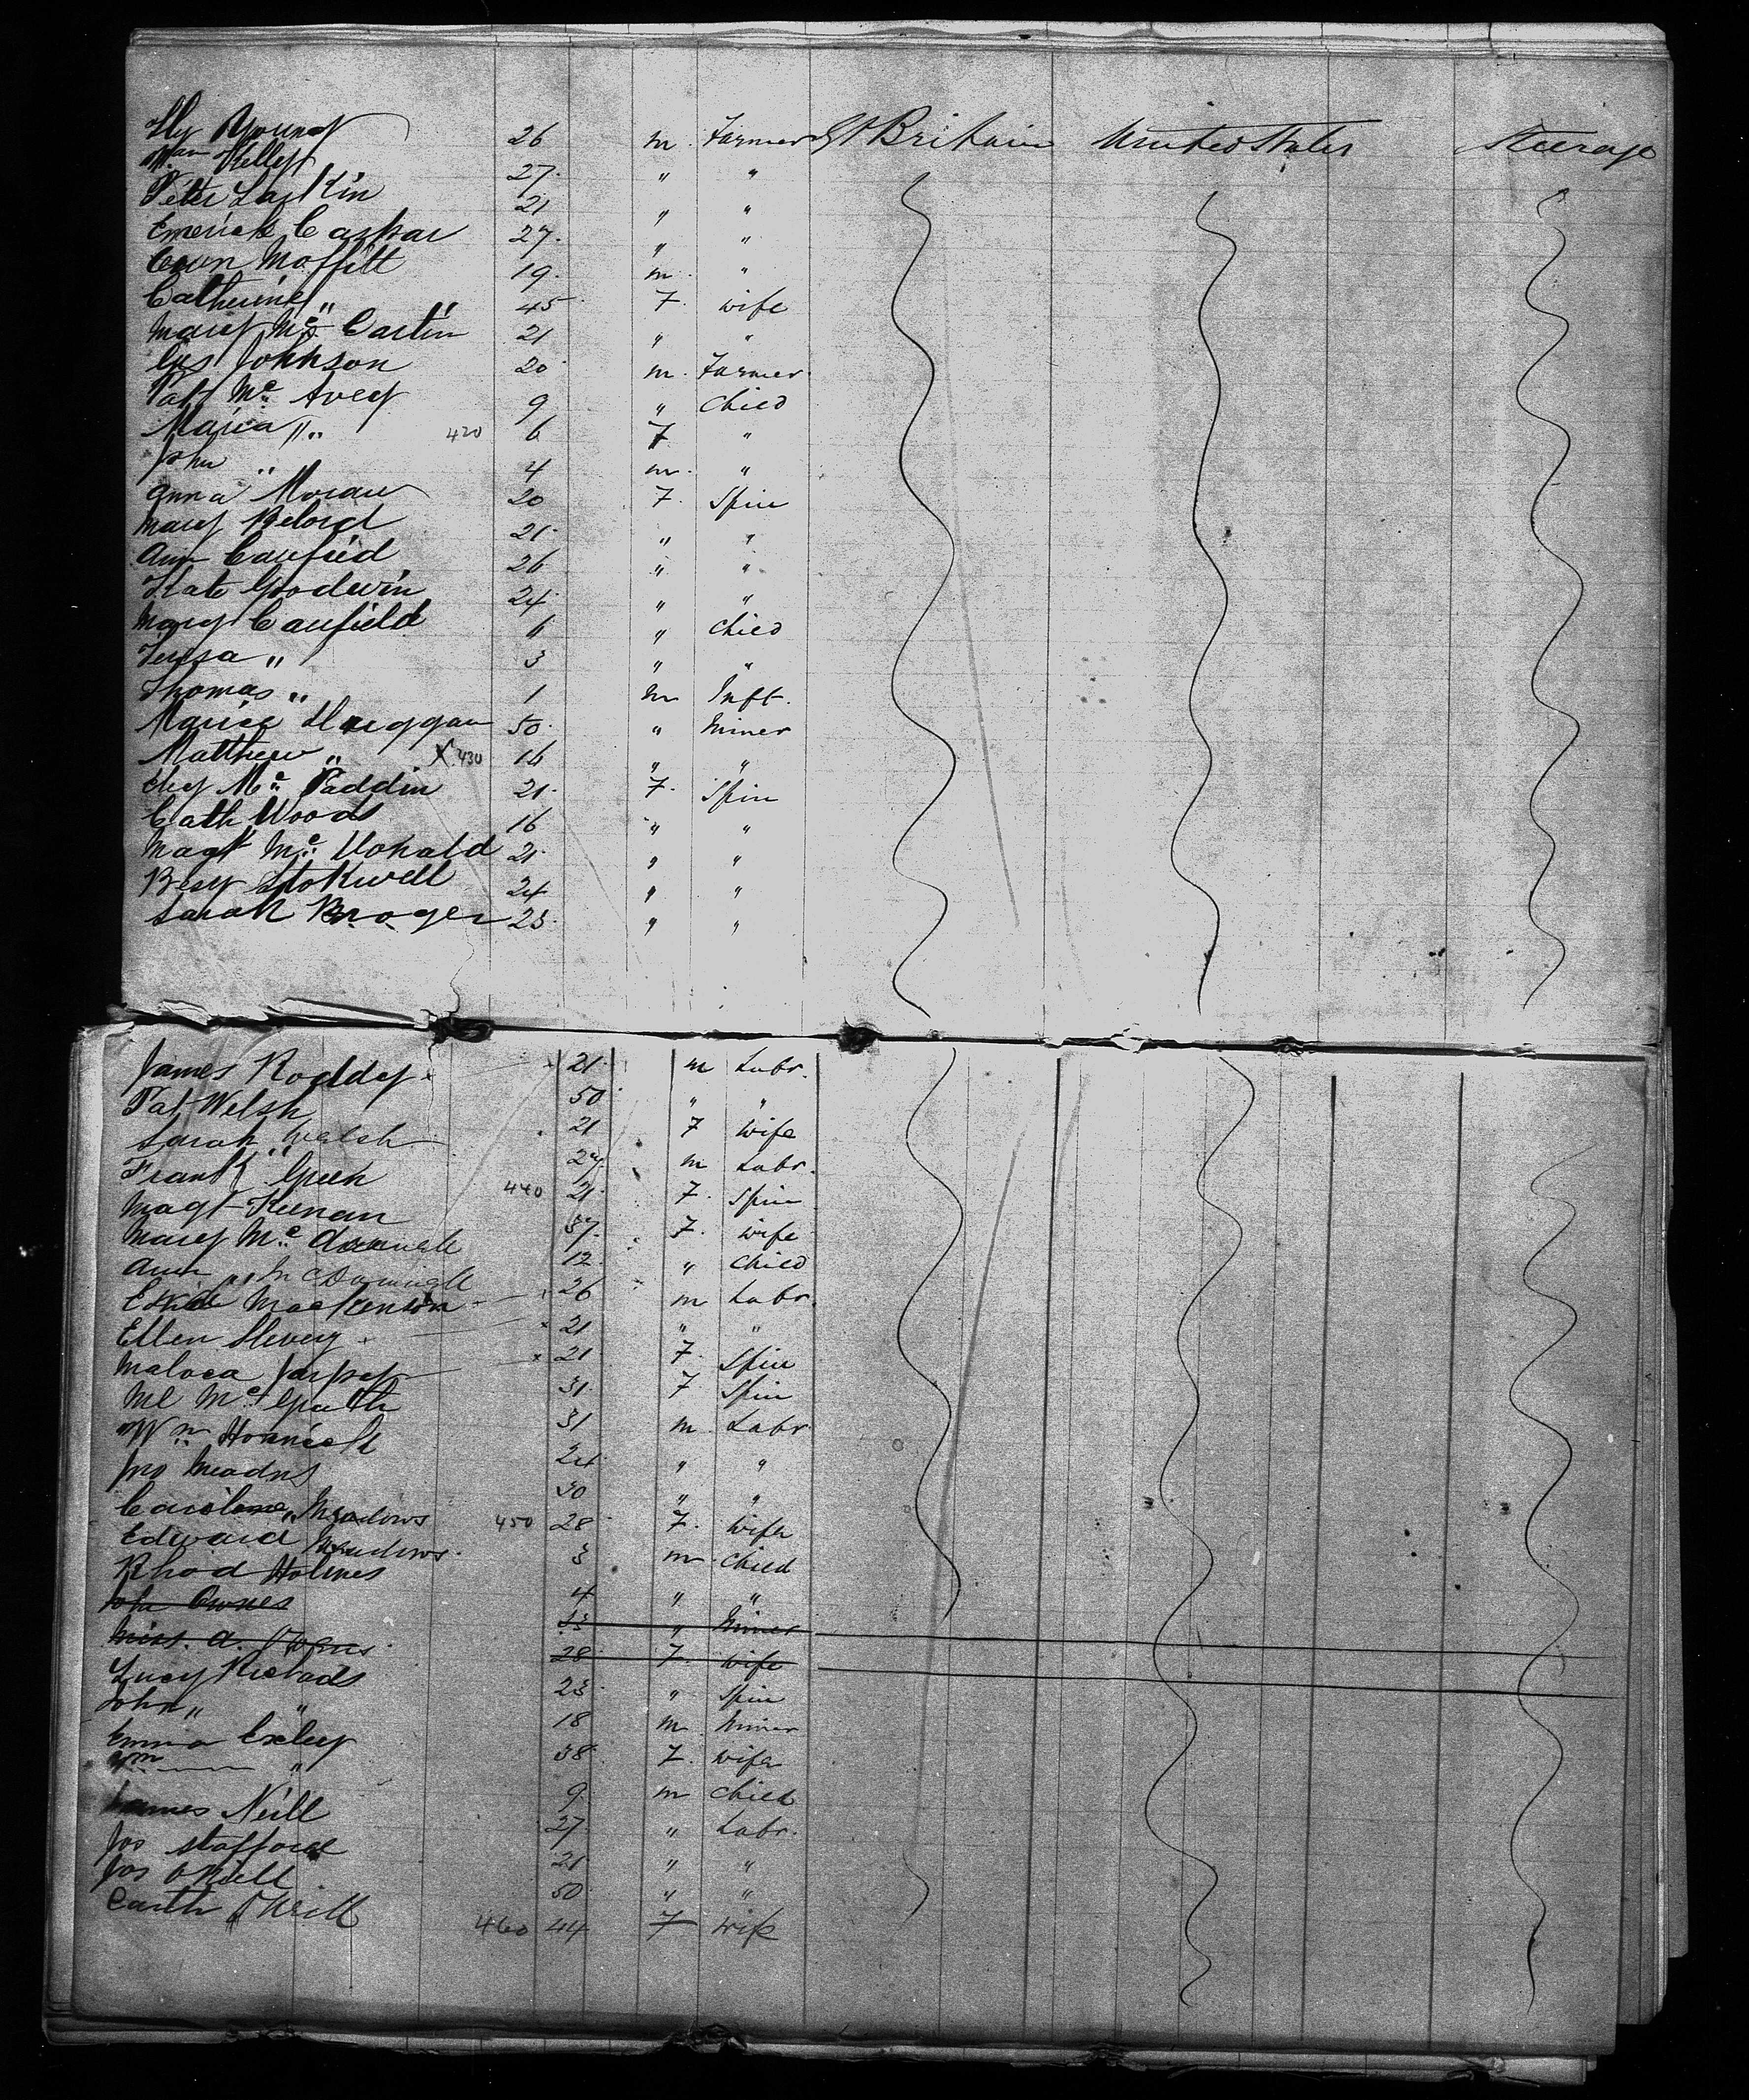 Hy Young 26 m. Farmer Gt Britain United States Steerage
Wm Kelley 27. " "
Peter Larkin 21 " "
Emerick Caspar 27. " "
Owen Moffitt 19. m. "
Catherine " 45 F. wife
Mary Mc Cartin 21 " "
Jas Johnson 20 m. Farmer
Pat Mc Avey 9 " Child
Maria " 420 6 F "
John " 4 m. "
Anna Moran 20 F. Spin
Mary Belord 21. " "
Ann Canfied 26 " "
Kate Goodwin 24 " "
Mary Canfield 6 " Child
Teresa " 3 " "
Thomas " 1 m Inft.
Maurice Duggan 50. " Miner
Matthew " X 430 16 " "
Mc Paddin 21. F. Spin
Cath Woods 16 " "
Magt Mc Donald 21. " "
Besy Stokwell 24 " "
Sarah Kroger 23. " "
James Roddy. 21. m Labr.
Pat Welsh 50 " "
Sarah " Welsh 21 F wife
Frank Green 27 m Labr.
Magt Keenan 440 21 F. Spin
Mary Mc 37. F. wife
Ann " 12. " Child
Mackenson 26 m Labr.
Ellen Slevey 21 " "
Jaspey 21 F. Spin
Ml Mc Grath 31 F. Spin
Wm Hornicolt 31 m Labr
Jno Meadns 24 " "
Caroline " Meadows 30 " "
Edward Meadows. 450 28 F. Wife
Rhod Holmes 3 m Child
John Ownes 4 " "
Miss. A. Owens 33 " Miner
Lucy Richads 28 F. Wife
John " " 23 " Spin
Emma Exley 18 m. Miner
Wm " 38 F. Wife
James Neill 9 m Child
Jos Stafford 27 " Labr.
Jas ONeill 21 " "
Caith ONeill 50 " "
460 44 F wife